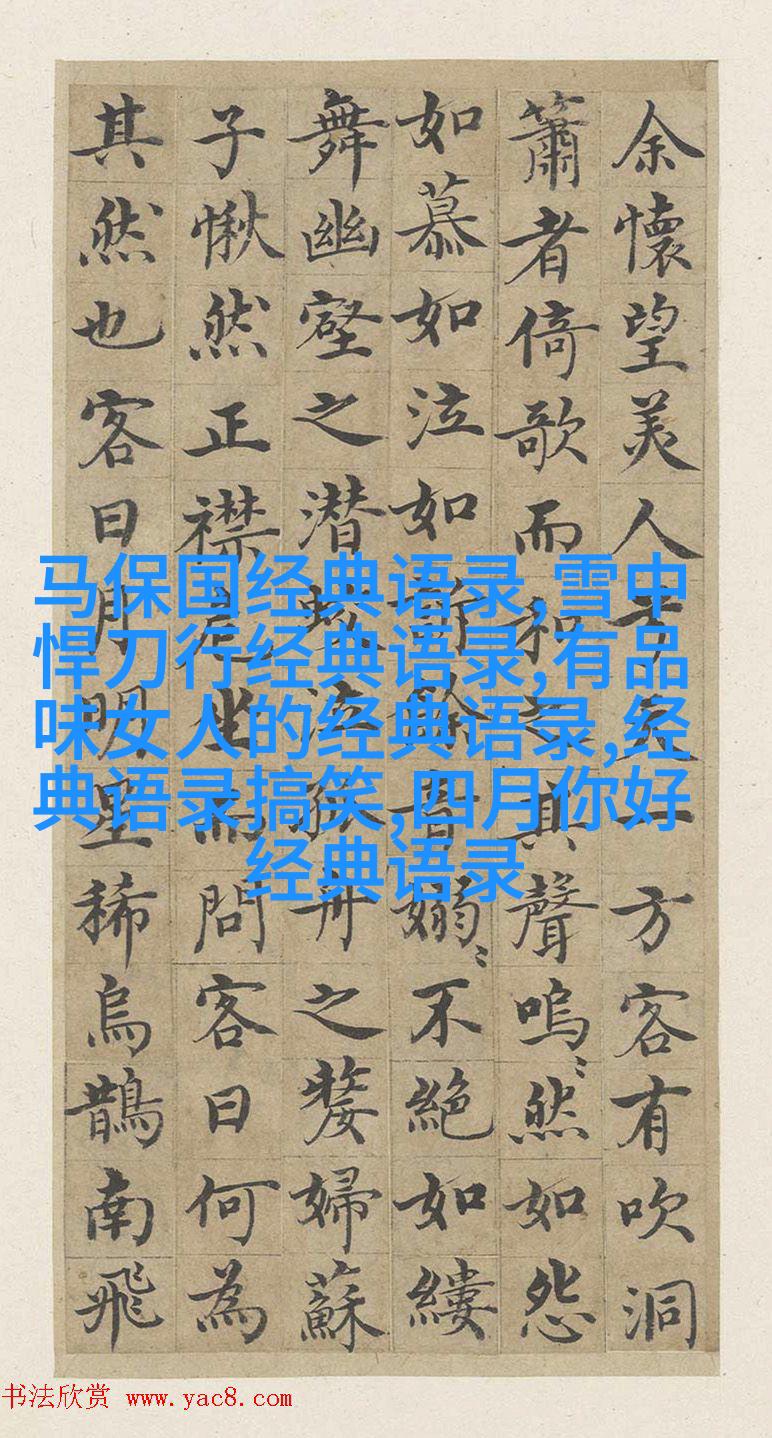 余懷望美人天一方客有吹洞
簫者倚歌而和之其聲嗚〻然如怨
如慕如泣如訴餘音嫋〻不絕如縷
舞幽壑之潜蛟泣孤舟之嫠婦蘇
子愀然正襟危坐而問客曰何為
其然也客曰月明星稀烏鵲南飛
马保国经典语录,雪中
悍刀行经典语录,有品
味女人的经典语录,经
典语录搞笑,四月你好
经典语录
书法欣赏 www.yac8.com